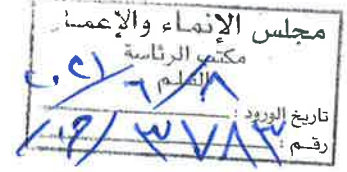 مجلس الإنماء والإعمار
مكتب الرئاسة
القلم
تاريخ الورود : ٨/٦/٢٠٢١
رقم : ٣٧٨٣